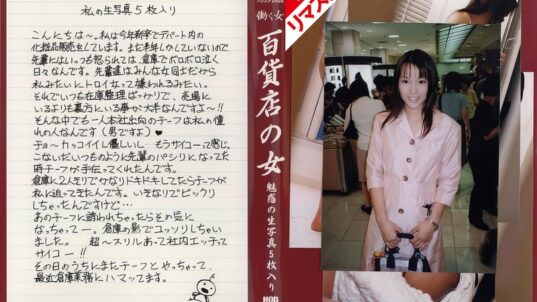 私の生写真5枚入り
こんにちは〜。私は今年新卒でデパート内の
化粧品販売をしています。まだ半年しかしていないので
先輩にはいっつも怒られては、倉庫でボロボロ泣く
日々なんです。先輩達はみんな女同士だから
私みたいにトロイ女って嫌われるみたい。
それでいつも在庫整理ばっかりで、売場に
いるよりも裏方にいる事が大半なんですよ〜!!
そんな中でも一人本社出向のチーフは私の憧
れの人なんです(男ですよ)♥
チョ〜カッコイイし優しいし…もうサイコーって感じ。
こないだいつものように先輩のパシリになってた
時チーフが手伝ってくれたんです。
倉庫に2人きりでかなりドキドキしてたらチーフが
私に迫ってきたんです。いきなりでビックリ
しちゃったんですけど…
あのチーフに誘われちゃったらその気に
なっちゃってー。倉庫の影でコッソリしちゃい
ました。超〜スリルあって社内エッチって
サイコー!!
その日のうちにまたチーフとやっちゃって、
最近倉庫業務にハマッてます。
働く女
百貨店の女
魅惑の生写真5枚入り
HOD
リマス